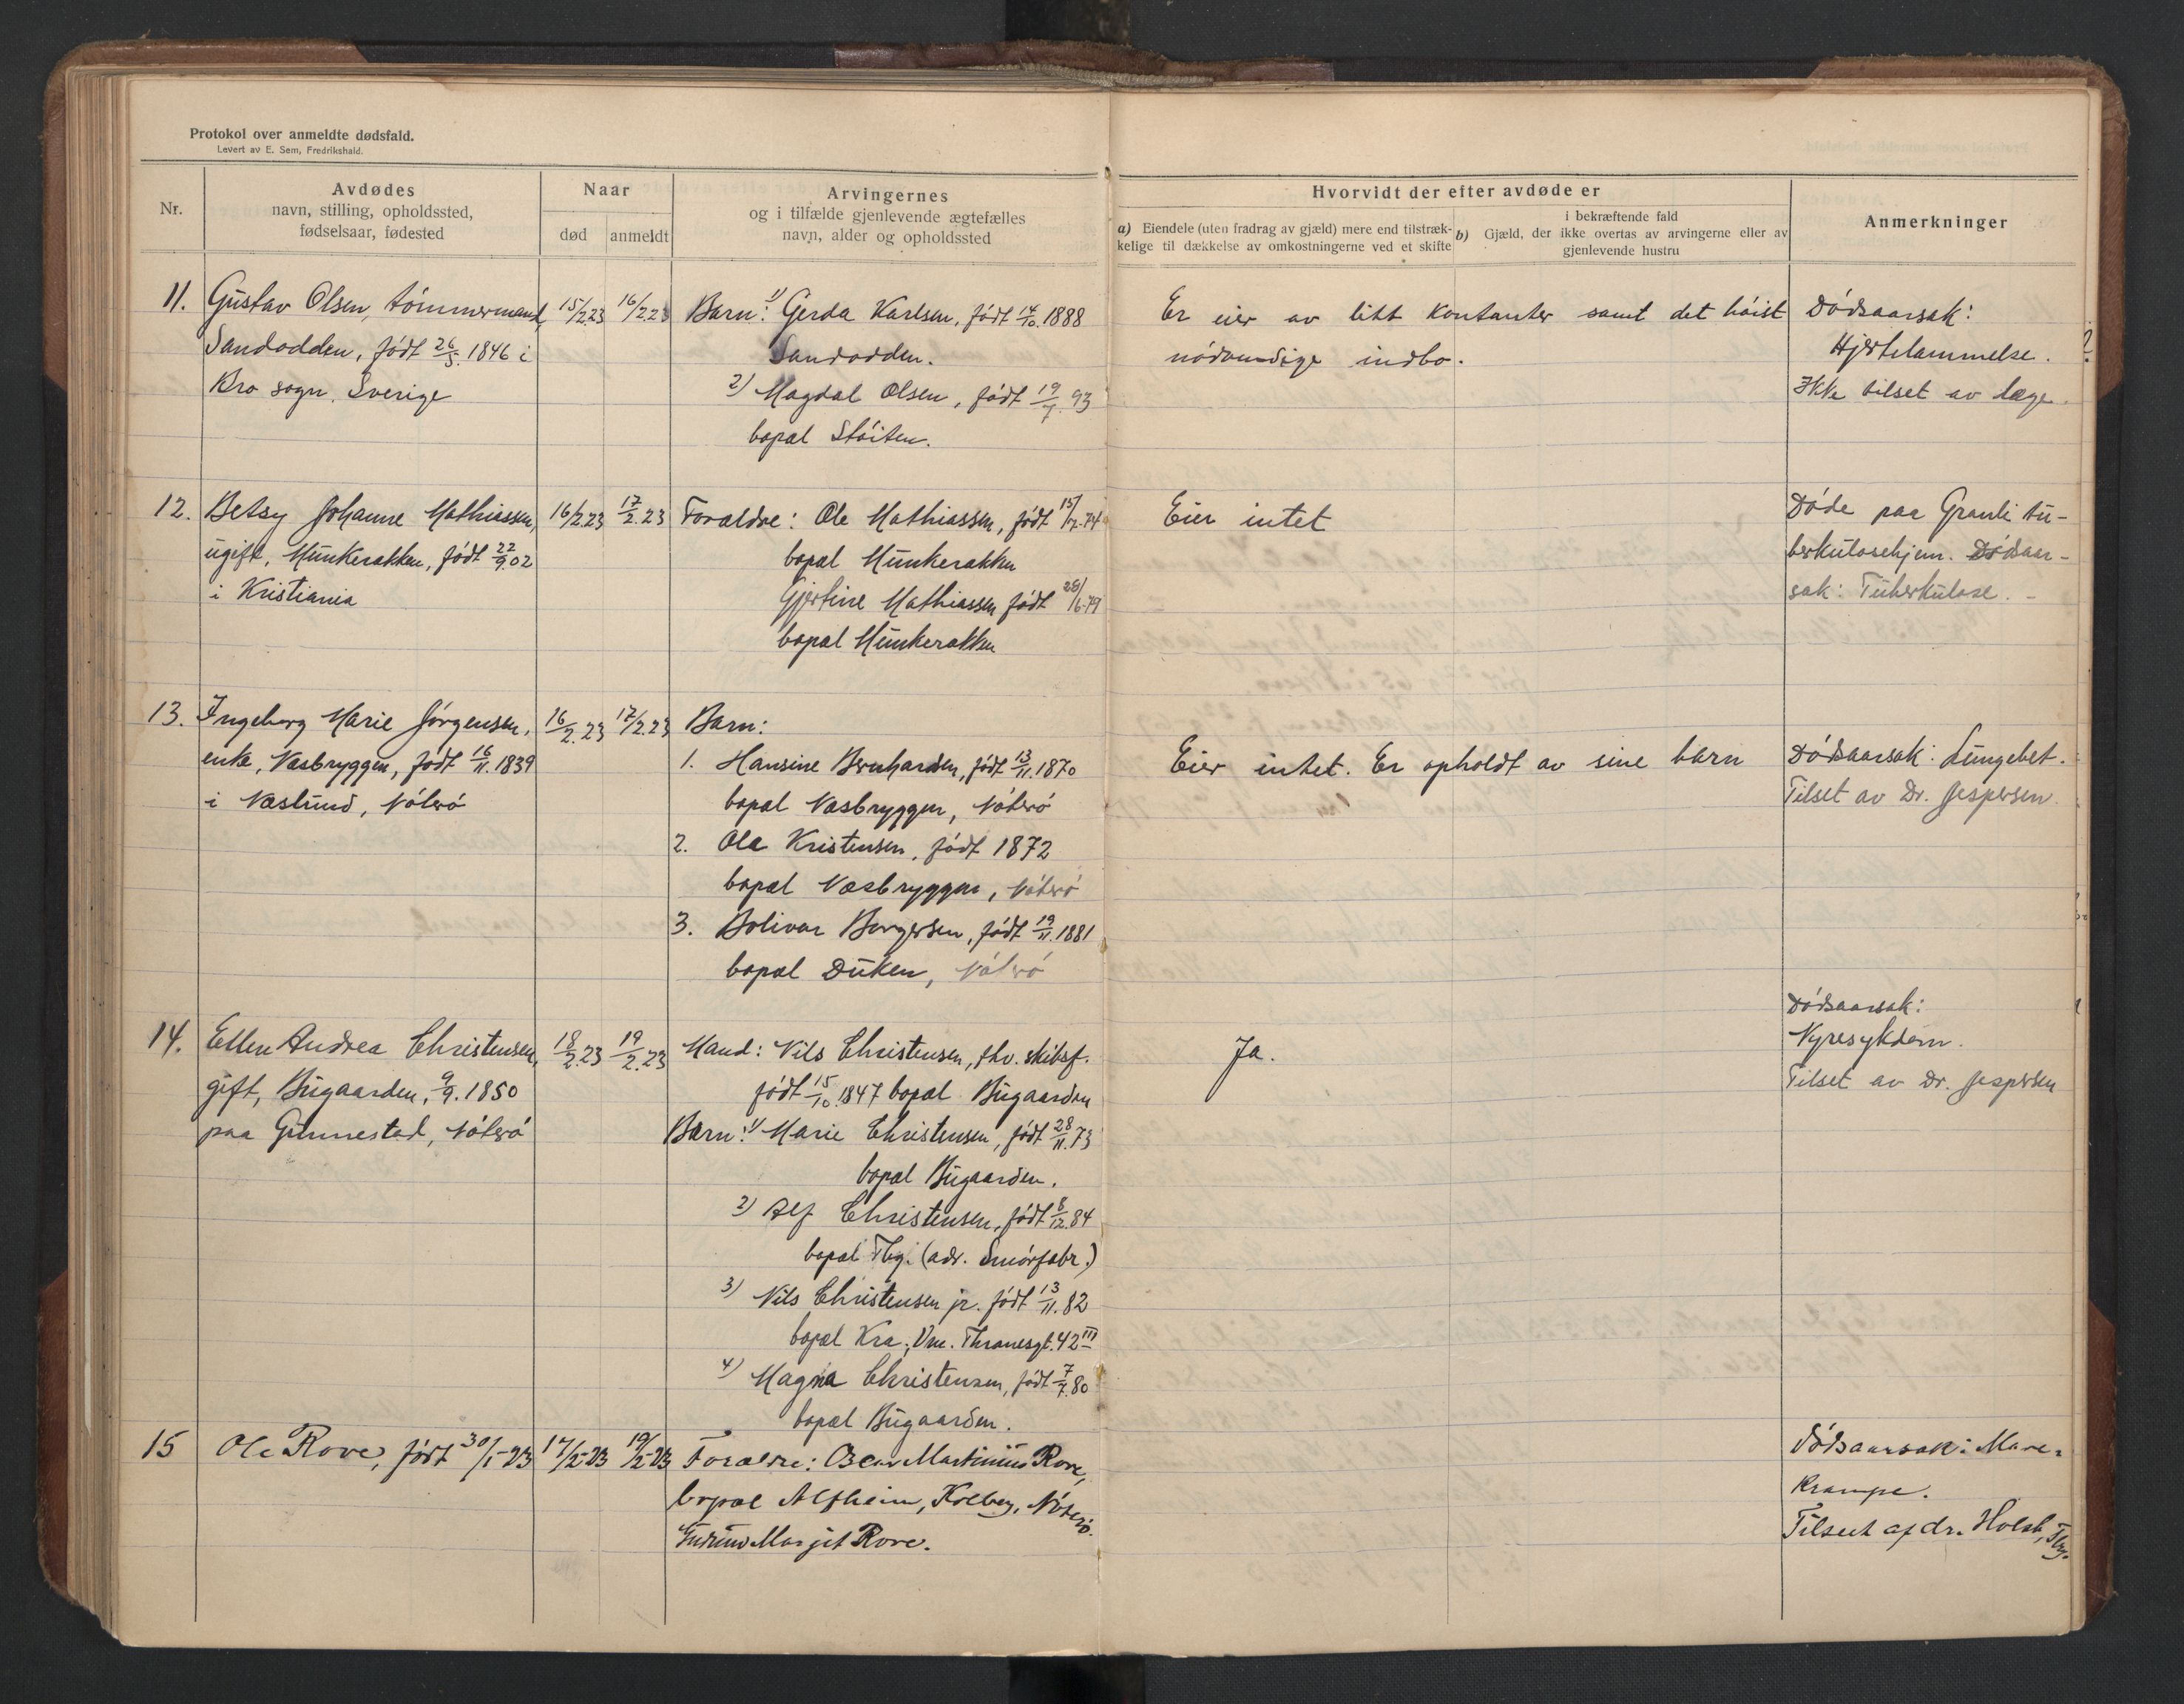 Protokol over anmeldte dødsfald.
Levert av E. Sem, Fredrikshald.
Nr.
Avdødes
navn, stilling, opholdssted,
fødselsaar, fødested
Naar
død
anmeldt
Arvingernes
og i tilfælde gjenlevende ægtefælles
navn, alder og opholdssted
Hvorvidt der efter avdøde er
a) Eiendele (uten fradrag av gjæld) mere end tilstræk-
kelige til dækkelse av omkostningerne ved et skifte
i bekræftende fald
b) Gjæld, der ikke overtas av arvingerne eller av
gjenlevende hustru
Anmerkninger
11.
Gustav Olsen, tømmermand,
Sandodden, født 26/5. 1846 i
Bro sogn, Sverige
15/2.23
16/2.23
Barn: 1) Gerda Karlsen, født 14/10. 1888
Sandodden.
2) Magdal Olsen, født 19/7. 93
bopæl Støiten.
Er eier av litt kontanter samt det høist
nødvendige indbo.
Dødsaarsak:
Hjertelammelse.
Ikke tilset av læge.
12.
Betsy Johanne Mathiassen,
ugift, Munkerakken, født 22/9.02
i Kristiania
16/2.23
17/2.23
Forældre: Ole Mathiassen, født 15/7.74
bopæl Munkerakken
Gjertine Mathiassen født 28/6.79
bopæl Munkerakken
Eier intet
Døde paa Granli tu-
berkulosehjem. Dødsaar-
sak: Tuberkulose. -
13.
Ingeborg Marie Jørgensen,
enke, Næsbryggen, født 16/11. 1839
i Næslund, Nøterø
16/2.23
17/2.23
Barn:
1. Hansine Bernhardsen, født 13/11. 1870
bopæl Næsbryggen, Nøterø
2. Ole Kristensen, født 1872
bopæl Næsbryggen, Nøterø
3. Bolivar Borgersen, født 19/11. 1881
bopæl Duken, Nøterø
Eier intet. Er opholdt av sine barn
Dødsaarsak: Lungebet.
Tilset av Dr. Jespersen.
14.
Ellen Andrea Christensen,
gift, Bugaarden, 9/9. 1850
paa Gunnestad, Nøterø
18/2.23
19/2.23
Mand: Nils Christensen, fhv. skibsf.
født 15/10. 1847 bopæl Bugaarden
Barn: 1) Marie Christensen, født 28/11. 73
bopæl Bugaarden.
2) Alf Christensen, født 8/12. 84
bopæl Tbg. (adr. Smørfabr.)
3) Nils Christensen jr. født 13/11. 82
bopæl Kra., Vm. Thranesgt. 42 III
4) Magna Christensen, født 7/7. 80
bopæl Bugaarden.
Ja.
Dødsaarsak:
Nyresykdom.
Tilset av Dr. Jespersen
15
Ole Rove, født 30/1-23
17/2-23
19/2-23
Forældre: Oscar Martinius Rove,
bopæl Alfheim, Kolberg, Nøterø.
Gudrun Margit Rove.
Dødsaarsak: Mave-
krampe.
Tilseet af dr. Holst, Tbg.